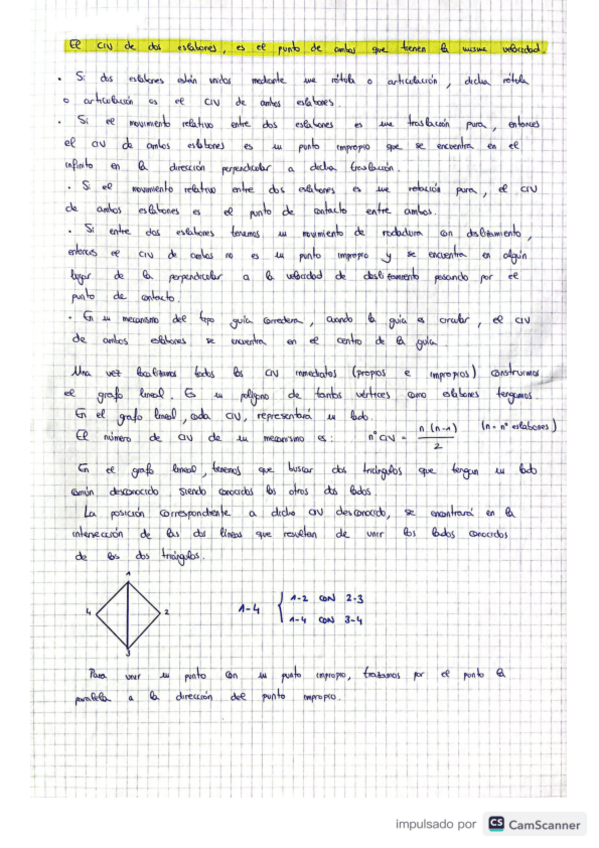 El CIV de dos eslabones, es el punto de ambos que tienen la misma velocidad.
· Si dos eslabones están unidos mediante una rótula o articulación, dicha rótula
o articulación es el CIV de ambos eslabones.
· Si el movimiento relativo entre dos eslabones es una traslación pura, entonces
el CIV de ambos eslabones es un punto impropio que se encuentra en el
infinito en la dirección perpendicular a dicha traslación.
· Si el movimiento relativo entre dos eslabones es una rotación pura, el CIV
de ambos eslabones es el punto de contacto entre ambos.
· Si entre dos eslabones tenemos un movimiento de rodadura con deslizamiento,
entonces el CIV de ambos no es un punto impropio y se encuentra en algún
lugar de la perpendicular a la velocidad de deslizamiento pasando por el
punto de contacto.
· En un mecanismo del tipo guía corredera, cuando la guía es circular, el CIV
de ambos eslabones se encuentra en el centro de la guía
Una vez localizamos todos los CIV inmediatos (propios e impropios) construimos
el grafo lineal. Es un polígono de tantos vértices como eslabones tengamos.
En el grafo lineal, cada CIV, representará un lado.
El número de CIV de un mecanismo es: nº CIV = n(n-1) / 2 (n = nº eslabones)
En el grafo lineal, tenemos que buscar dos triángulos que tengan un lado
común desconocido siendo conocidos los otros dos lados.
La posición correspondiente a dicho CIV desconocido, se encontrará en la
intersección de las dos líneas que resultan de unir los lados conocidos
de los dos triángulos.
1
4 2
3
1-4 { 1-2 CON 2-3
1-4 CON 3-4
Para unir un punto con un punto impropio, trazamos por el punto la
paralela a la dirección del punto impropio.
impulsado por CS CamScanner